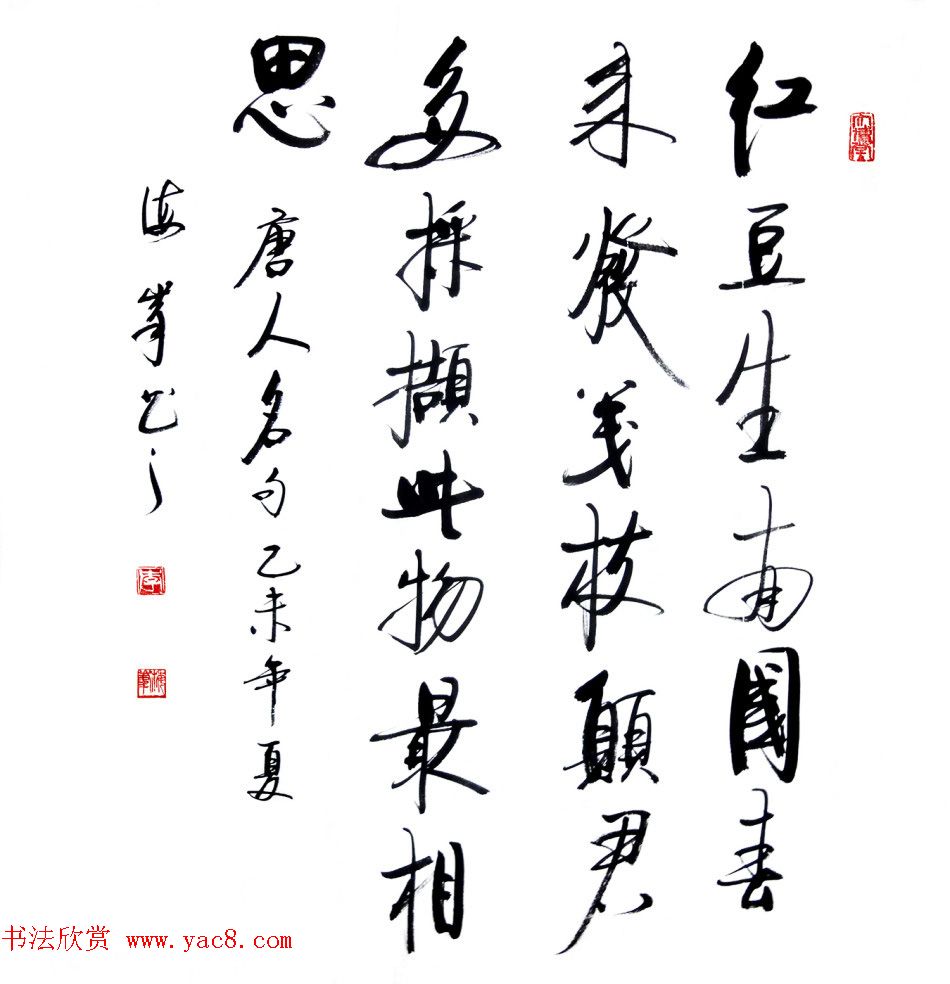 红豆生南國春
来發幾枝願君
多採擷此物最相
思 唐人名句乙未年夏
海峯书之
书法欣赏 www.yac8.com